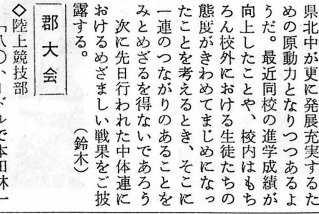 県北中が更に発展充実するた
めの原動力となりつつあるよ
うだ。最近同校の進学成績が
向上したことや、校内はもち
ろん校外における生徒たちの
態度がきわめてまじめになっ
たことを考えるとき、そこに
一連のつながりのあることを
みとめざるを得ないであろう
次に先日行われた中体連に
おけるめざましい戦果をご披
露する。
（鈴木）
郡大会
◇陸上競技部